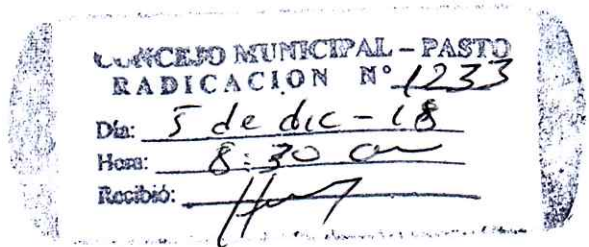 CONCEJO MUNICIPAL – PASTO
RADICACION N° 1233
Día: 5 de dic - 18
Hora: 8:30 am
Recibió: